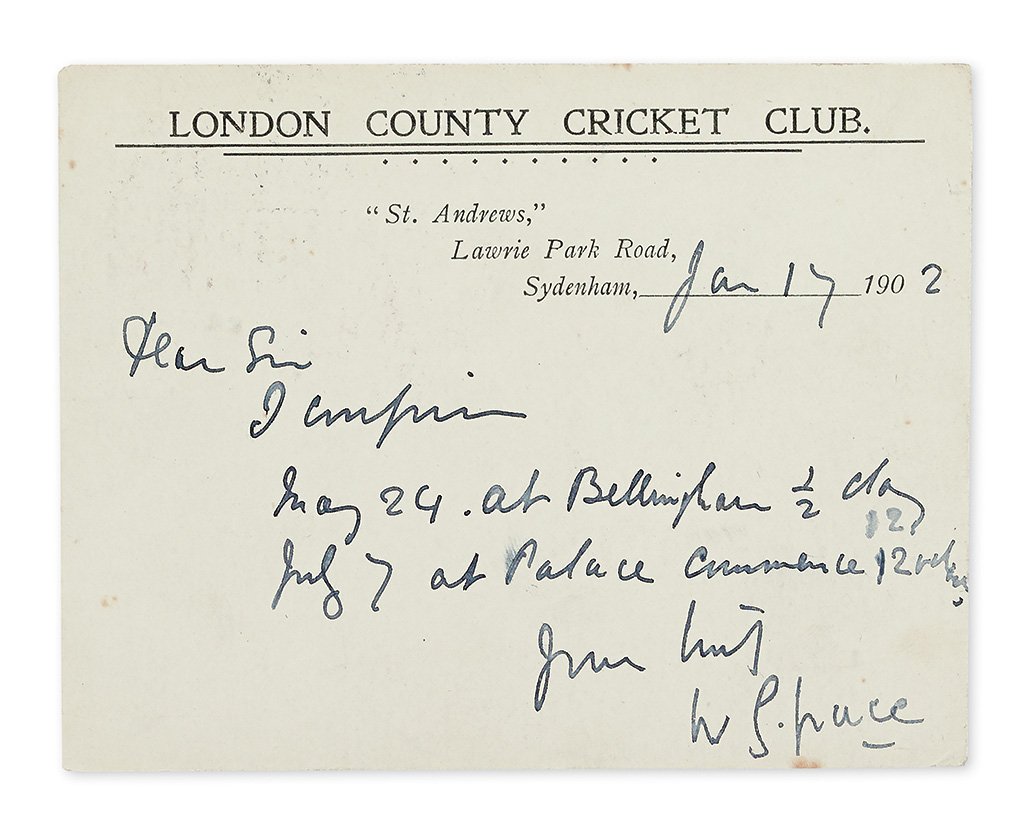 LONDON COUNTY CRICKET CLUB.
"St. Andrews,"
Lawrie Park Road,
Sydenham, Jan 17 1902
Dear Sir
I confirm
May 24. at Bellingham ½ day
12
July 7 at Palace commence 12 oclk
Yours truly
W G. Grace